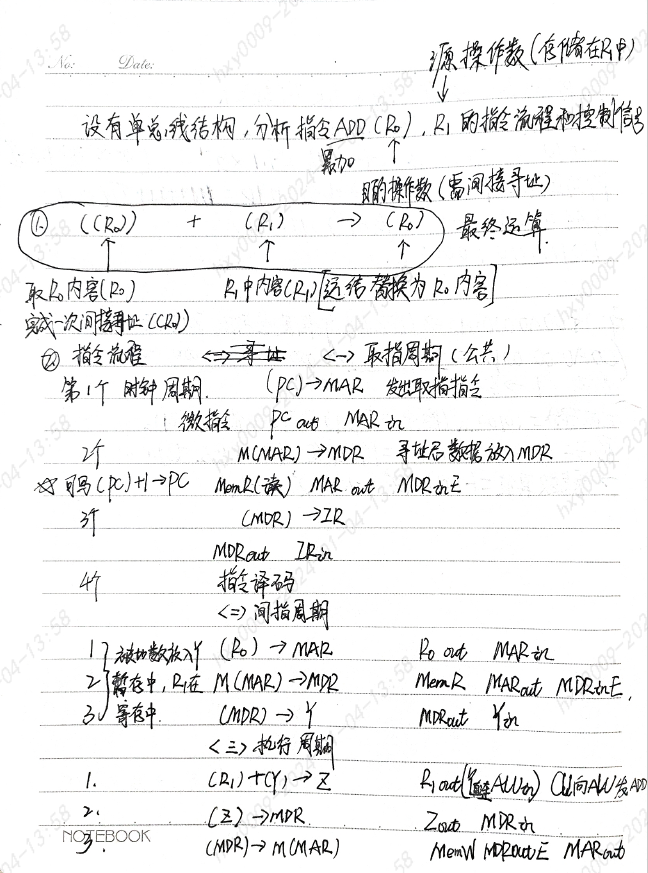 No:
Date:
源操作数(存储在R₁中)
设有单总线结构,分析指令ADD (R₀), R₁ 的指令流程和控制信号
累加
目的操作数(需间接寻址)
① ((R₀)) + (R₁) → (R₀) 最终运算
取R₀内容(R₀) R₁中内容(R₁) [运结替换为R₀内容]
完成一次间接寻址((R₀))
② 指令流程 <一> 取指周期(公共)
第1个时钟周期. (PC)→MAR 发出取指指令
微指令 PCout MARin
2个 M(MAR)→MDR 寻址后数据放入MDR
(PC)+1→PC MemR(读) MARout MDRinE
3个 (MDR)→IR
MDRout IRin
4个 指令译码
<二> 间指周期
1 被加数放入Y (R₀)→MAR R₀out MARin
2 暂存中,R₁在 M(MAR)→MDR MemR MARout MDRinE,
3 寄存中. (MDR)→Y MDRout Yin
<三> 执行周期
1. (R₁)+(Y)→Z R₁out ALUin) CU向ALU发ADD
2. (Z)→MDR Zout MDRin
3. (MDR)→M(MAR) MemW MDRoutE MARout
NOTEBOOK